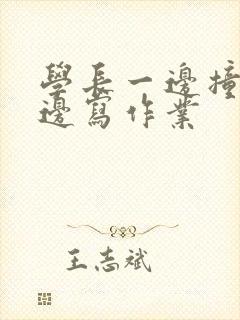 學長一邊撞
邊寫作業
王志斌